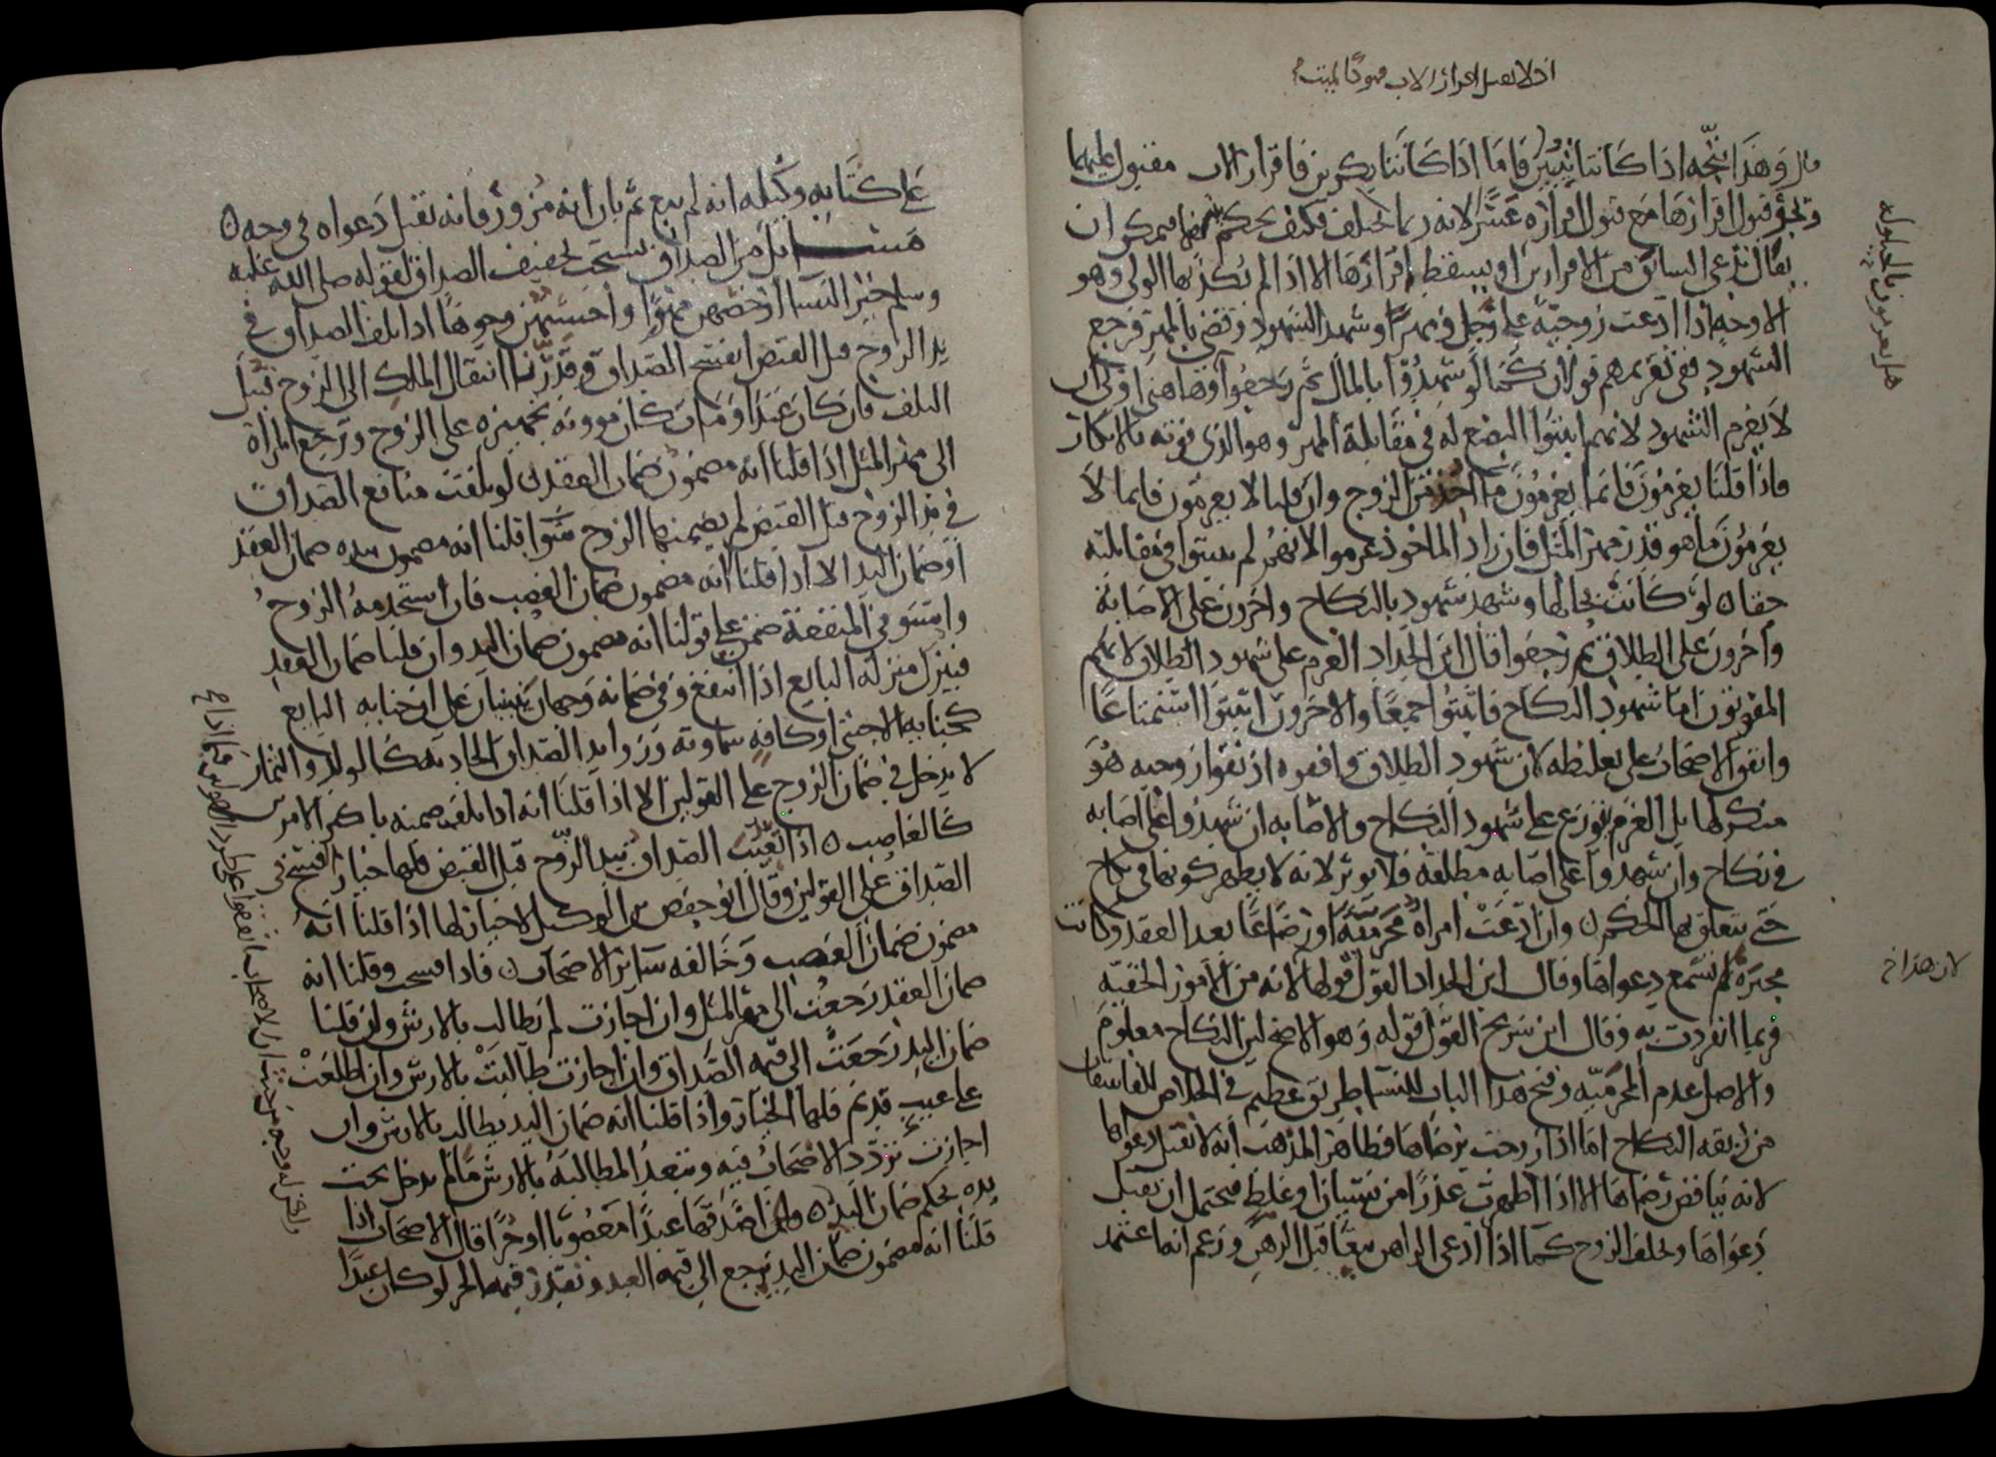 قال وهذا يتجه اذا كانتا ثيبين فاما اذا كانتا بكرين فاقرار الاب مقبول عليهما
وقبول اقرارها مع قبول اقراره عسر لانه ربما يختلف فكيف يحكم فيمكن ان
يقال يراعى السابق من الاقرارين او يسقط اقرارها الا اذا لم يكذبها الولى وهو
الاوجه اذا ادعت زوجية على رجل ومهرا وشهد الشهود وقضى بالمهر فرجع
الشهود ففى تغريمهم قولان كما لو شهدوا بالمال ثم رجعوا وهاهنا اولى بان
لا يغرم الشهود لانهم اثبتوا البضع له فى مقابلة المهر وهو الذى فوته بالانكار
فاذا قلنا يغرمون فانما يغرمون ما اخذ من الزوج وان قلنا لا يغرمون فانما لا
يغرمون ما هو قدر مهر المثل فان زاد الماخوذ غرموا لانهم لم يثبتوا فى مقابلته
حقا لو كانت بحالها وشهد شهود بالنكاح واخرون على الاصابة
واخرون على الطلاق ثم رجعوا قال ابن الحداد الغرم على شهود الطلاق لانهم
المفوتون اما شهود النكاح فاثبتوا جمعا والاخرون اثبتوا استمتاعا
واتفق الاصحاب على تغليطه لان شهود الطلاق وافقوه اذ نفوا زوجيه هو
منكر لها بل الغرم يتوزع على شهود النكاح والاصابه ان شهدوا على اصابه
فى نكاح وان شهدوا على اصابه مطلقه فلا يوثر لانه لا يظهر كونها فى نكاح
حتى يتعلق بها الحكم وان ادعت امراة محرمية او رضاعا بعد العقد وكانت
مجبرة لم تسمع دعواها وقال ابن الحداد القول قولها لانه من الامور الخفيه
وربما انفردت به وقال ابن سريج القول قوله وهو الاصح لان النكاح معلوم
والاصل عدم المحرميه وفتح هذا الباب للنسا طريق عظيم فى الخلاص للفاسقات
من ربقه النكاح اما اذا زوجت برضاها فظاهر المذهب انه لا تقبل دعواها
لانه يناقض رضاها الا اذا اظهرت عذرا من نسيان او غلط فيحتمل ان تقبل
دعواها ويحلف الزوج كما اذا ادعى الراهن بيعا قبل الرهن وزعم انه اعتمد
لان هذا خ
على كتابه وكيله انه لم يبع ثم بان انه مزور فانه تقبل دعواه فى وجه
مسايل من الصداق يستحب تخفيف الصداق لقوله صلى الله عليه
وسلم خير النسا ارخصهن مهورا واحسنهن وجوها اذا تلف الصداق فى
يد الزوج قبل القبض انفسخ الصداق وقدرنا انتقال الملك الى الزوج قبيل
التلف فان كان عبدا ومات كان موونه تجهيزه على الزوج وترجع المراة
الى مهر المثل اذا قلنا انه مضمون ضمان العقد لو تلفت منافع الصداق
فى يد الزوج قبل القبض لم يضمنها الزوج سوا قلنا انه مضمون بيده ضمان العقد
او ضمان اليد الا اذا قلنا انه مضمون ضمان الغصب فان استخدمه الزوج
واستوفى المنفعة ضمن على قولنا انه مضمون ضمان اليد وان قلنا ضمان العقد
فينزل منزله البايع اذا انتفع وفى ضمانه وجهان يبنيان على ان جنايه البايع
كجنايه الاجنبى او كافه سماويه وزوايد الصداق الحادثه كالولد والثمار
لا يدخل فى ضمان الزوج على القولين الا اذا قلنا انه اذا تلف ضمنه باكثر الامرين
كالغاصب اذا تعيب الصداق بيد الزوج قبل القبض فلها خيار الفسخ فى
الصداق على القولين وقال ابو حفص بن الوكيل لا خيار لها اذا قلنا انه
مضمون ضمان الغصب وخالفه ساير الاصحاب فاذا فسخت وقلنا انه
ضمان العقد رجعت الى مهر المثل وان اجازت لم تطالب بالارش وان قلنا
ضمان اليد رجعت الى قيمه الصداق وان اجازت طالبت بالارش وان اطلعت
على عيب قديم فلها الخيار واذا قلنا انه ضمان اليد يطالب بالارش وان
اجازت تردد الاصحاب فيه وتبعد المطالبه بالارش ما لم يدخل تحت
يده بحكم ضمان اليد وان اصدقها عبدا مغصوبا او حرا قال الاصحاب اذا
قلنا انه مضمون ضمان اليد يرجع الى قيمه العبد وتقدر قيمه الحر لو كان عبدا